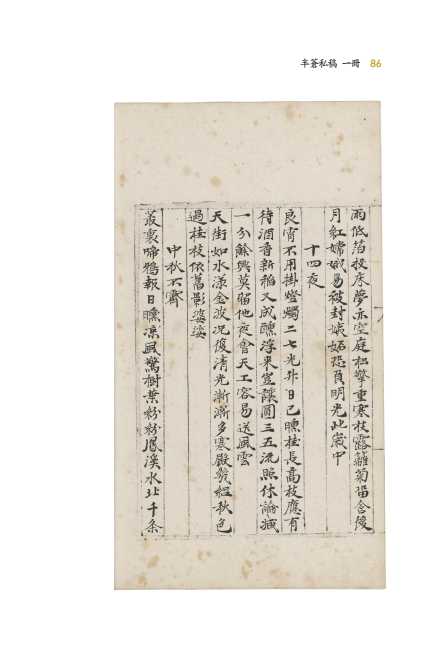 半蒼私稿 一冊 86
雨低箔投床夢亦空庭松擎重寒枝露籬菊留含後
月紅嫦娥易被封姨妬恐負明光此歲中
十四夜
良宵不用掛燈燭二七光升日已曛桂長高枝應有
待酒香新稻又成醺浮來豈讓圓三五流照休論
一分餘興莫留他夜會天工容易送風雲
天街如水漾金波況復清光漸漸多寒殿秋色
過桂枝依舊影婆娑
中秋不霽
叢裏啼鴉報日曛涼風驚樹葉紛紛溪水北千条